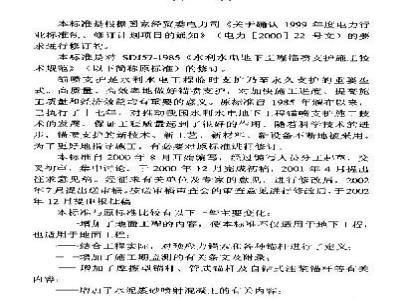 本标准是根据国家经贸委电力司《关于确认 1999 年度电力行
业标准制、修订计划项目的通知》（电力［2000］22 号文）的要
求进行修订的。
本标准是对 SDJ57-1985《水利水电地下工程锚喷支护施工技
术规范》（以下简称原标准）的修订。
锚喷支护是水利水电工程临时支护乃至永久支护的重要型
式。高质量、高效率地做好锚喷支护，对加快施工进度、提高施
工质量和经济效益均有重要的意义。原标准自 1985 年颁布以来，
已执行了十七年，对推动我国水利水电地下工程锚喷支护施工技
术的发展、保证工程质量起到了很好的作用。随着科学技术的进
步，锚喷支护的新技术、新工艺、新材料、新设备不断地被采用。
为了更好地指导施工，有必要对原标准进行修订。
本标准自 2000 年 8 月开始编写，经过编写人员分工起草、交
叉讨论、集中讨论，于 2000 年 12 月完成初稿，2001 年 4 月提出
征求意见稿。经征求有关单位及专家的意见，进行修改后，2002
年7月提出送审稿。按送审稿审查会的审查意见进行修改后，于2002
年 12 月提出报批稿
本标准与原标准比较有以下一些主要变化：
——增加了地面工程的内容，使本标准不仅适用于地下工程，
也适用于地面工程；
——结合工程实际，对预应力锚索和各种锚杆进行了定义；
——增加了施工期监测的有关条文及附录；
——增加了摩擦型锚杆、管式锚杆及自钻式注浆锚杆等有关
内容；
——增加了水泥裹砂喷射混凝土的有关内容；